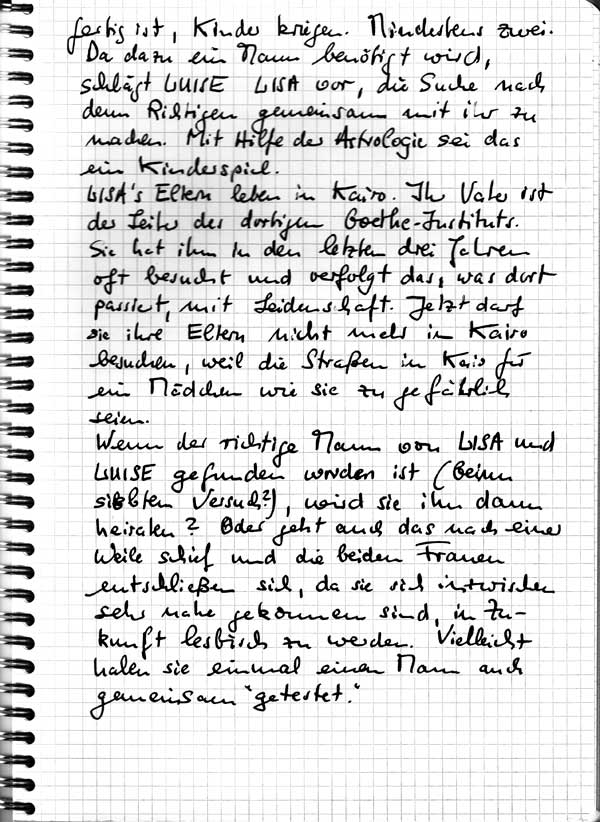 fertig ist, Kinder kriegen. Mindestens zwei.
Da dazu ein Mann benötigt wird,
schlägt LUISE LISA vor, die Suche nach
dem Richtigen gemeinsam mit ihr zu
machen. Mit Hilfe der Astrologie sei das
ein Kinderspiel.
LISA's Eltern leben in Kairo. Ihr Vater ist
der Leiter des dortigen Goethe-Instituts.
Sie hat ihn in den letzten drei Jahren
oft besucht und verfolgt das, was dort
passiert, mit Leidenschaft. Jetzt darf
sie ihre Eltern nicht mehr in Kairo
besuchen, weil die Straßen in Kairo für
ein Mädchen wie sie zu gefährlich
seien.
Wenn der richtige Mann von LISA und
LUISE gefunden worden ist (Beim
siebten Versuch?), wird sie ihn dann
heiraten? Oder geht auch das nach einer
Weile schief und die beiden Frauen
entschließen sich, da sie sich inzwischen
sehr nahe gekommen sind, in Zu-
kunft lesbisch zu werden. Vielleicht
haben sie einmal einen Mann auch
gemeinsam "getestet."